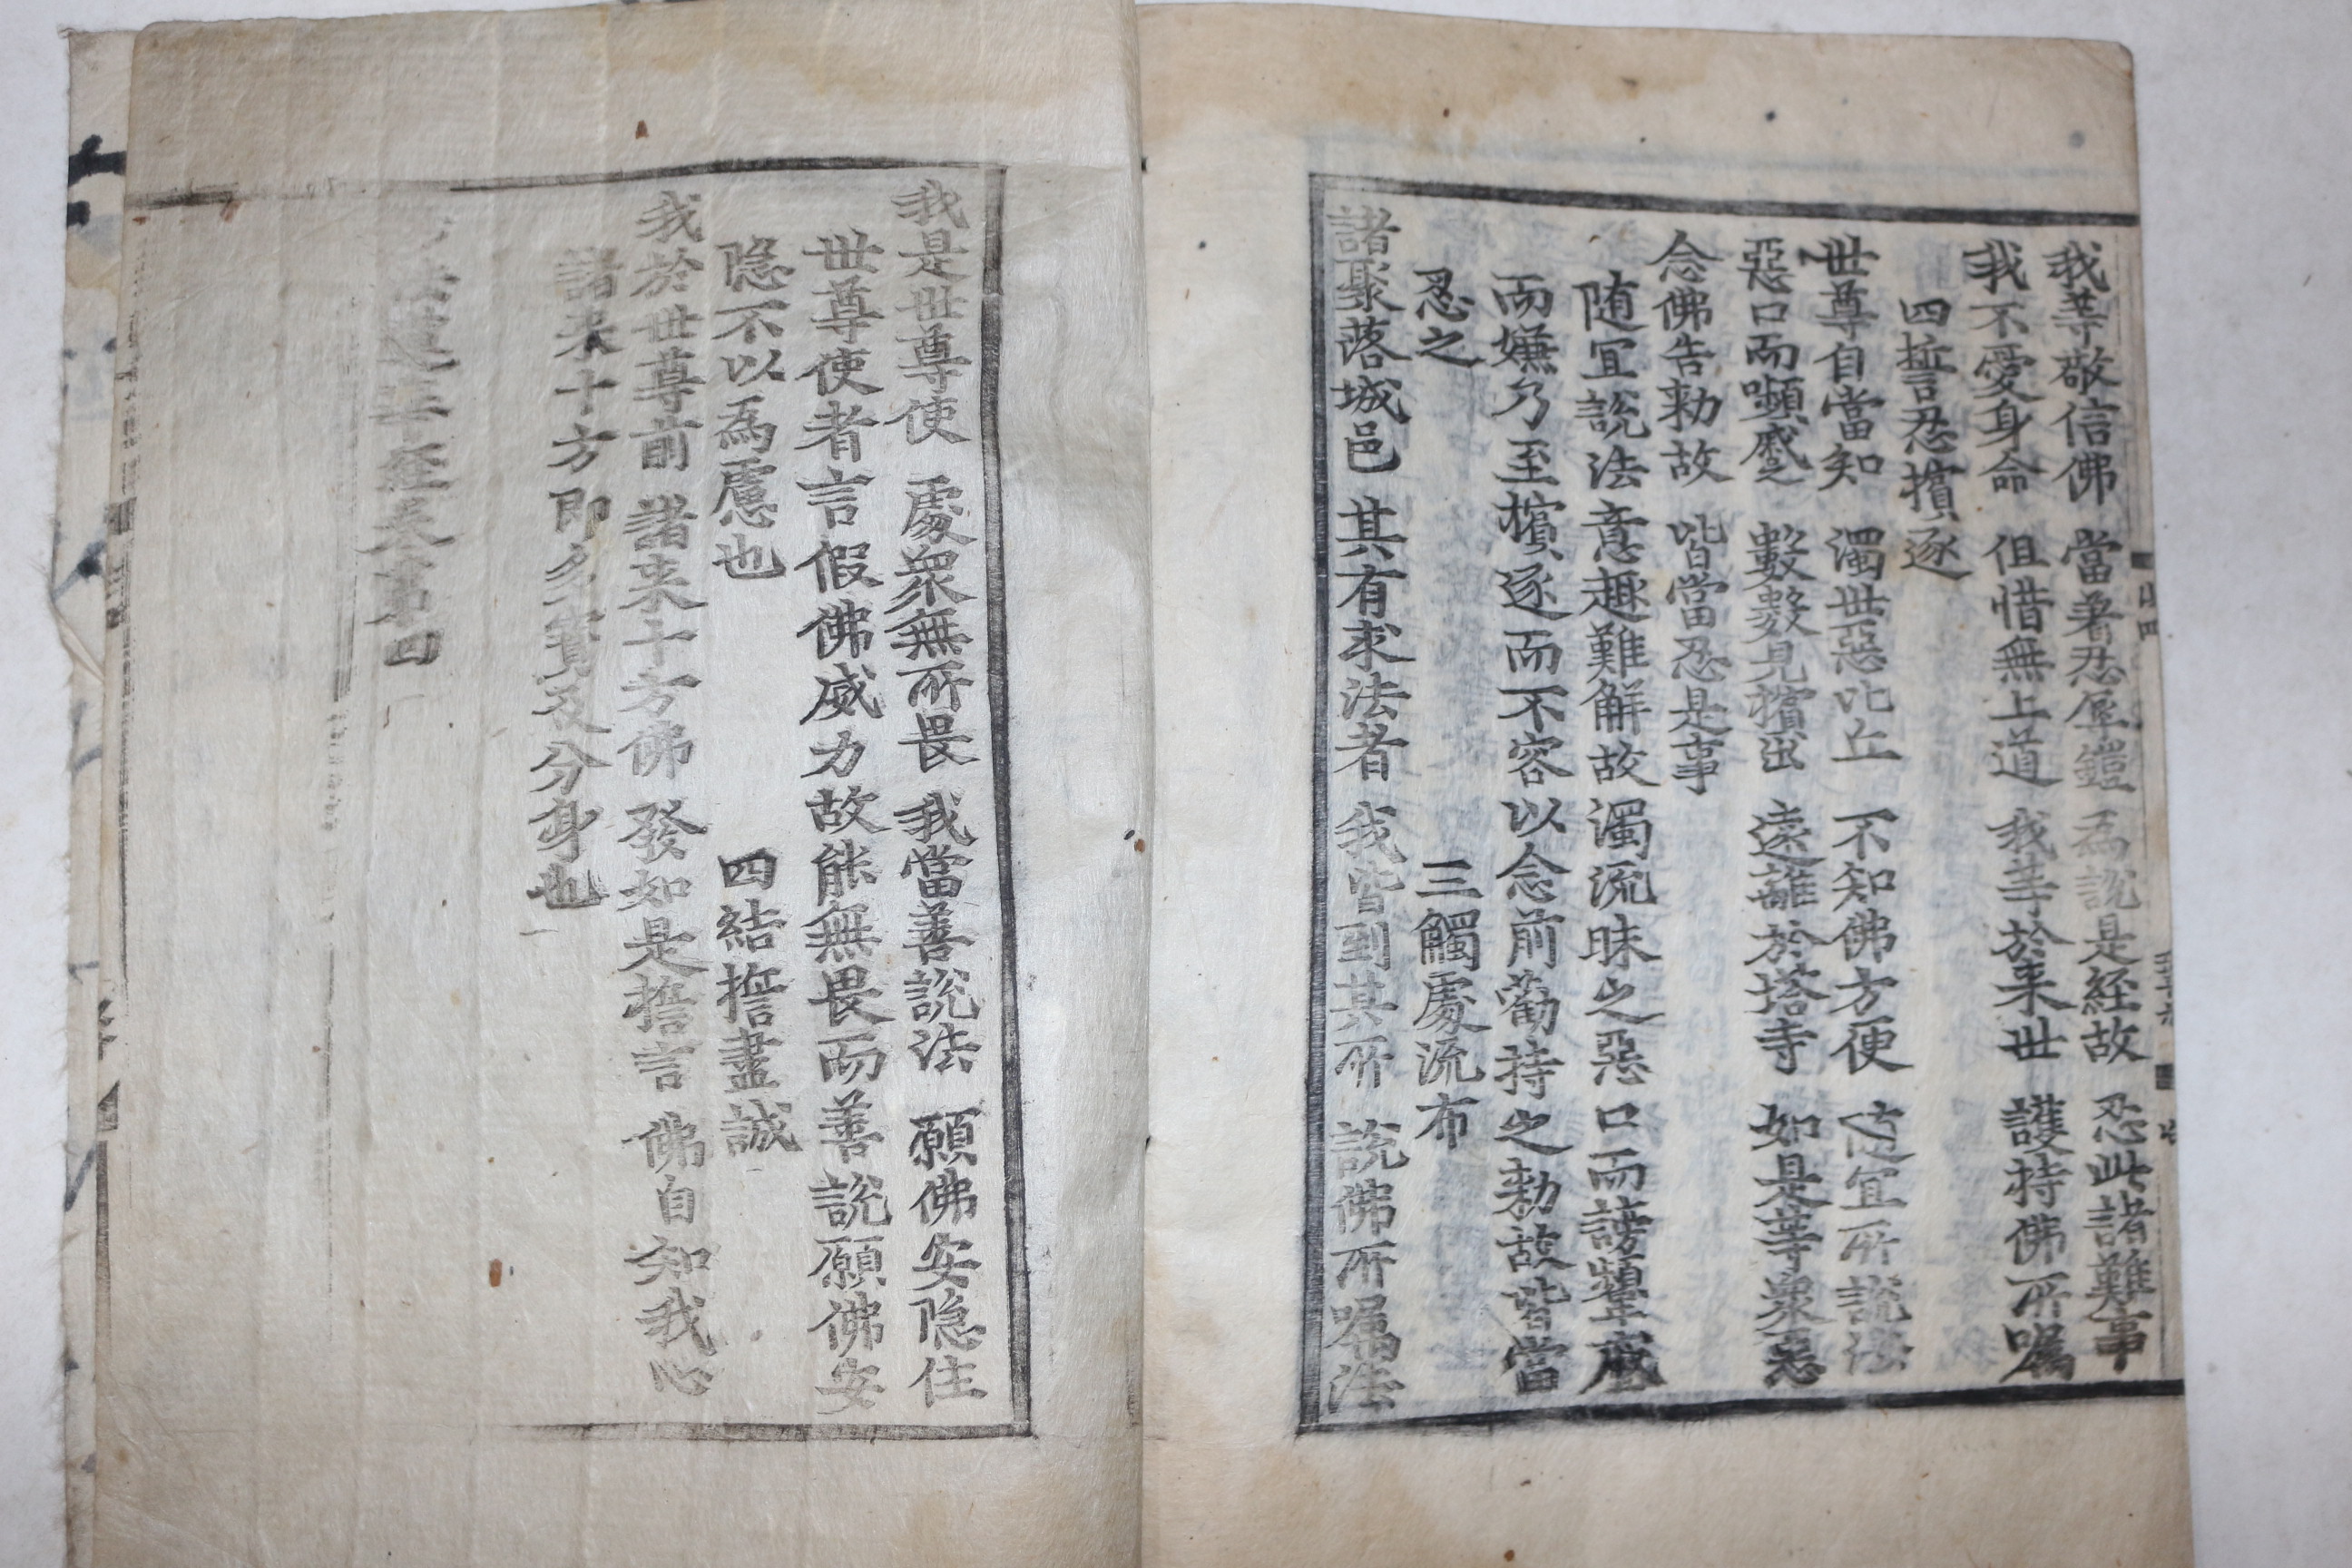 我等敬信佛 當著忍辱鎧 為說是経故 忍此諸難事
我不愛身命 但惜無上道 我等於来世 護持佛所囑
四誓忍擯逐
世尊自當知 濁世惡比丘 不知佛方便 随宜所說法
惡口而嚬蹙 數數見擯出 遠離於塔寺 如是等衆惡
念佛告勅故 皆當忍是事
随宜說法意趣難解故濁流昧之惡口而謗顰蹙
而嫌乃至擯逐而不容以念前勸持之勅故皆當
忍之 三觸處流布
諸聚落城邑 其有求法者 我皆到其所 說佛所囑法
我是世尊使 處衆無所畏 我當善說法 願佛安隐住
世尊使者言假佛威力故能無畏而善說願佛安
隐不以為慮也 四結誓盡誠
我於世尊前 諸来十方佛 發如是誓言 佛自知我心
諸来十方即多寳及分身也
法蓮華経卷第四